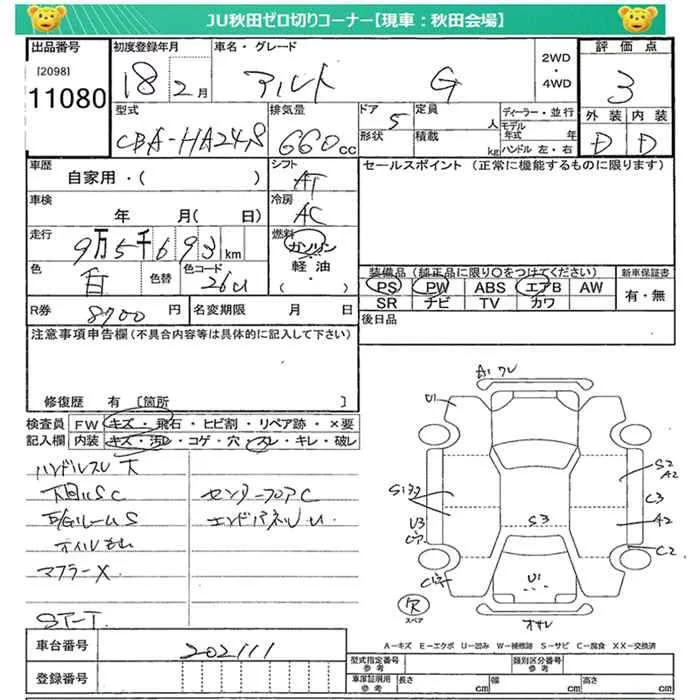 JU秋田ゼロ切りコーナー【現車:秋田会場】
出品番号
[2098]
11080
初度登録年月
18年2月
車名・グレード
アルト G
2WD
・
4WD
評価点
3
外装 内装
D D
型式
CBA-HA24S
排気量
660cc
ドア 5
形状
定員 人
積載 kg
ディーラー・並行
モデル年式 年
ハンドル 左・右
車歴
自家用・( )
シフト
AT
セールスポイント (正常に機能するものに限ります)
車検
年 月( 日)
冷房
AC
走行
9万5千693km
燃料
ガソリン
・
軽油
・
色
白
色替
色コード
26U
装備品(純正品に限り○をつけてください)
PS PW ABS エアB AW
SR ナビ TV カワ
新車保証書
有・無
R券 8700円
名変期限 月 日
後日品
注意事項申告欄(不具合内容等は具体的に記入して下さい)
修復歴 有 [箇所 ]
検査員記入欄
FW キズ・飛石・ヒビ割・リペア跡・×要
内装 キズ・汚れ・コゲ・穴・スレ・キレ・破レ
ハンドルスレ 大
下回りSC
E/GルームS
マフラーX
ST-T
センターフロアC
エンドパネルU
A1 ワレ
U1
S2
A2
C3
A2
C2
U3
S3
U1
欠
スペア
A-キズ E-エクボ U-凹み W-補修跡 S-サビ C-腐食 XX-交換済
車台番号
202111
登録番号
型式指定番号
参考
類別区分番号
参考
車庫証明用
参考
長さ cm
幅 cm
高さ cm